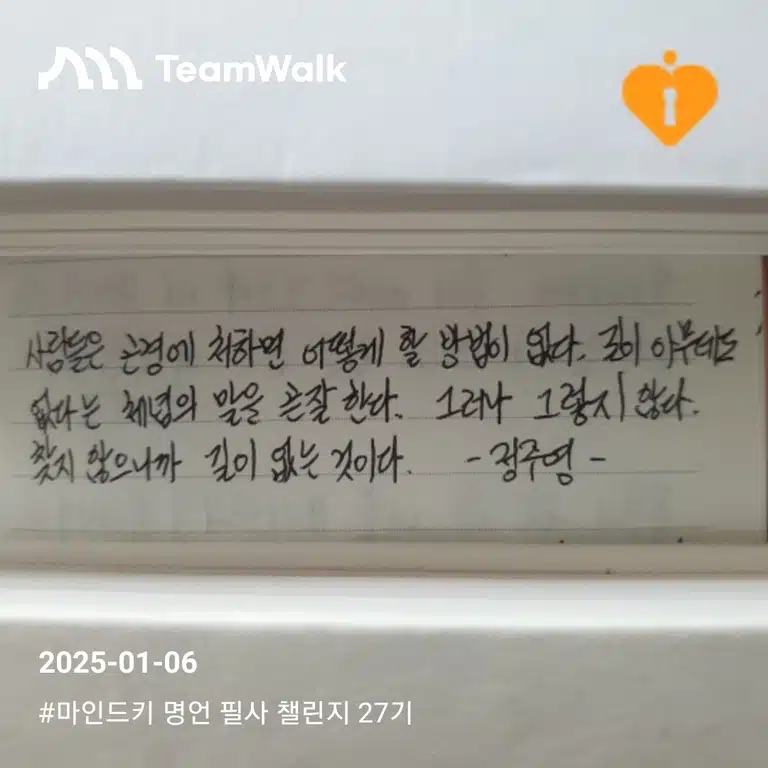 TeamWalk
사람들은 곤경에 처하면 어떻게 할 방법이 없다. 길이 아무데도
없다는 체념의 말을 곧잘 한다. 그러나 그렇지 않다.
찾지 않으니까 길이 없는 것이다. - 정주영 -
2025-01-06
#마인드키 명언 필사 챌린지 27기